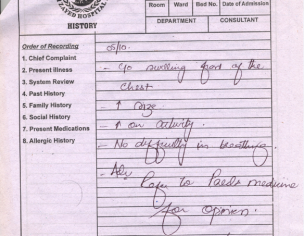 HOSPITAL
HISTORY
Room Ward Bed No. Date of Admission
DEPARTMENT CONSULTANT
Order of Recording
1. Chief Complaint
2. Present Illness
3. System Review
4. Past History
5. Family History
6. Social History
7. Present Medications
8. Allergic History
05/10.
- C/o swelling front of the
chest
- ↑ size
- ↑ on activity.
- No difficulty in breathing.
- Adv
Refer to Paeds medicine
for opinion.